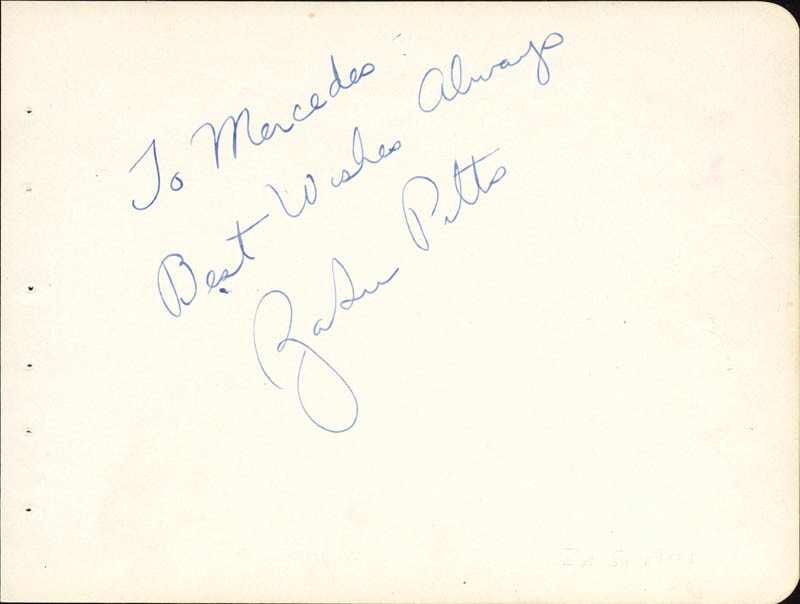 To Mercedes -
Best Wishes Always
ZaSu Pitts
Za Su Pitts